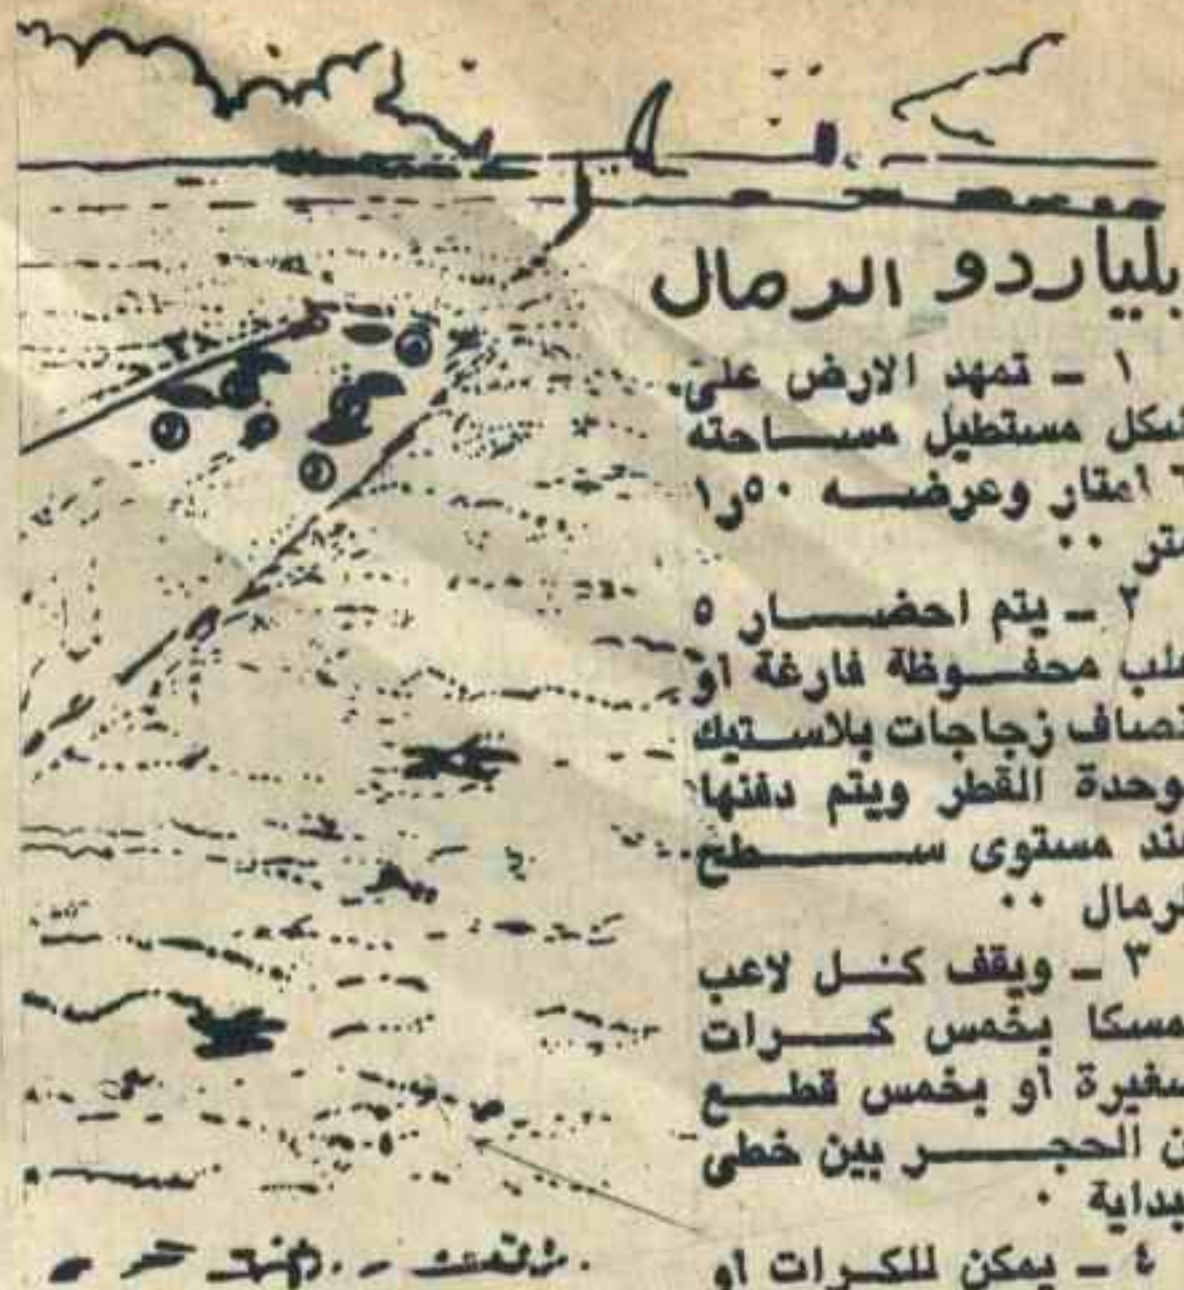 بلياردو الرمال
١ ـ تمهد الارض على
شكل مستطيل مساحته
٦ امتار وعرضه ١٫٥٠
متر ٠٠
٢ ـ يتم احضار ٥
علب محفوظة فارغة او
نصاف زجاجات بلاستيك
وحدة القطر ويتم دفنها
عند مستوى سطح
لرمال ٠٠
٣ ـ ويقف كل لاعب
مسكا بخمس كرات
صغيرة أو بخمس قطع
ن الحجر بين خطى
بداية ٠
٤ ـ يمكن للكرات او